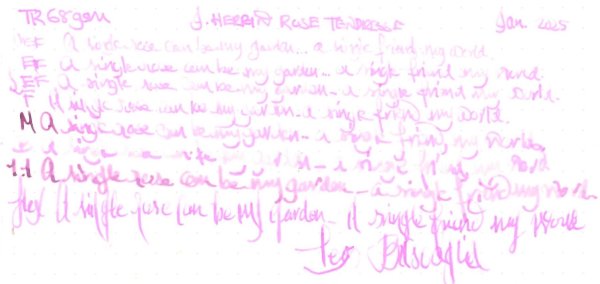 TR 68gsm J. HERBIN ROSE TENDRESSE Jan. 2025
EF A single rose can be my garden... a single friend my world.
EF A single rose can be my garden... a single friend my world.
EF A single rose can be my garden - a single friend my world.
F A single rose can be my garden - a single friend my world.
M A single rose can be my garden - a single friend my world.
a single friend my world
1.1 A single rose can be my garden - a single friend my world.
flex A single rose can be my garden - A single friend my world
Leo Buscaglia